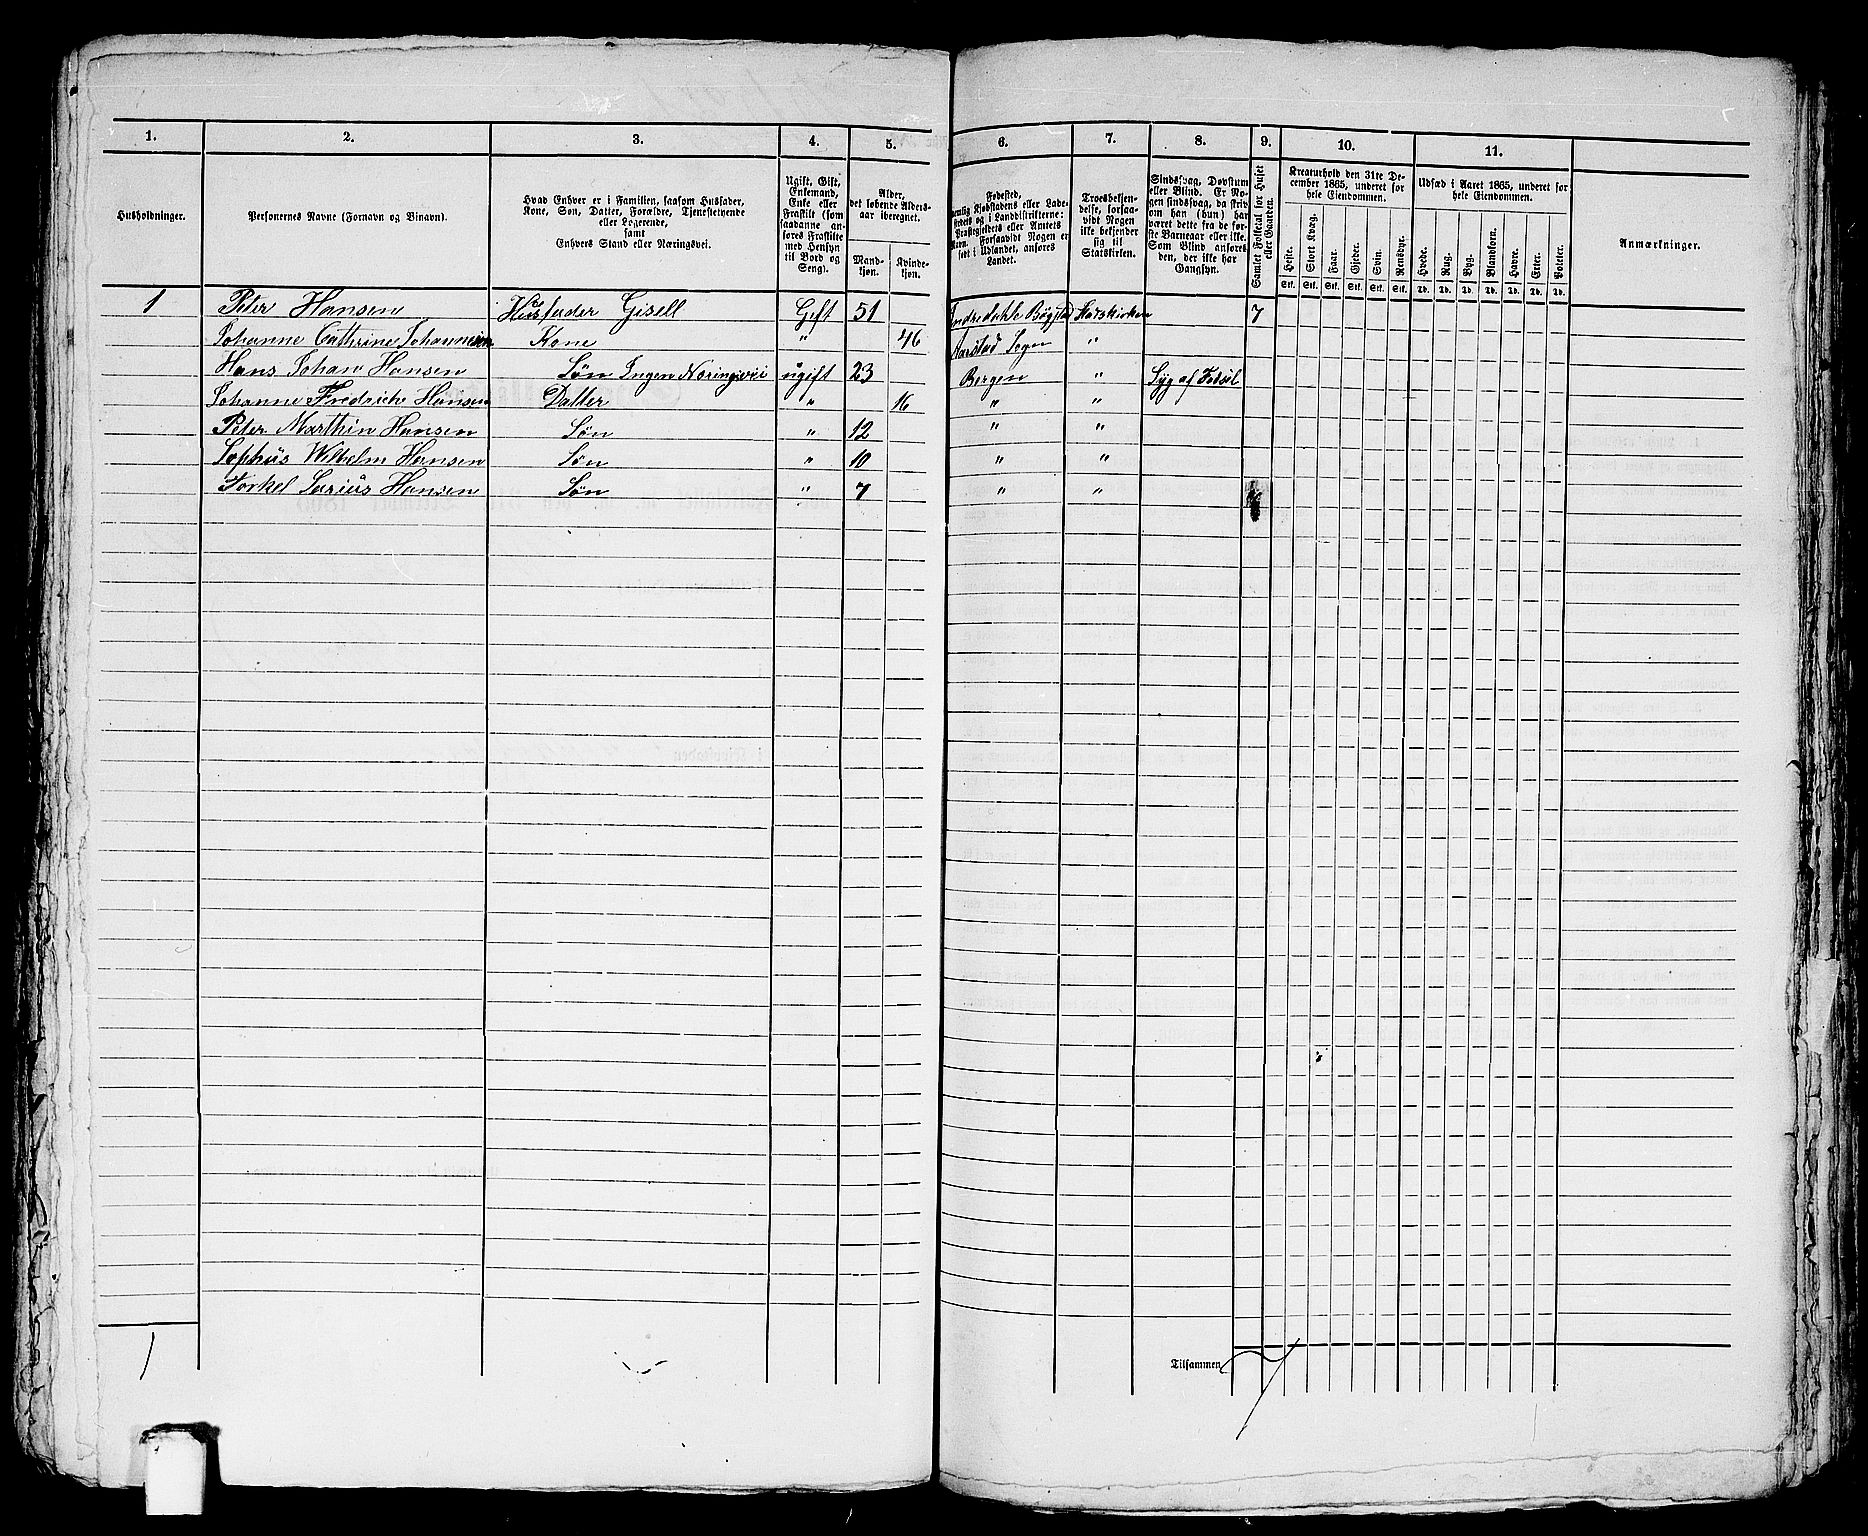 1. 2. 3. 4. 5. 6. 7. 8. 9. 10. 11.
Husholdninger.
Personernes Navne (Fornavn og Binavn).
Hvad Enhver er i Familien, saasom Husfader,
Kone, Søn, Datter, Forældre, Tjenestetyende
eller Logerende,
samt
Enhvers Stand eller Næringsvei.
Ugift, Gift,
Enkemand,
Enke eller
Fraskilt (som
saadanne an-
føres Fraskilte
med Hensyn
til Bord og
Seng).
Alder,
det løbende Alders-
aar iberegnet.
Mand-
kjøn.
Kvinde-
kjøn.
Fødested,
nemlig Kjøbstadens eller Lade-
stedets og i Landdistrikterne:
Præstegjeldets eller Amtets
Navn. Forsaavidt Nogen er
født i Udlandet, anføres
Landet.
Troesbekjen-
delse, forsaa-
vidt Nogen
ikke bekjender
sig til
Statskirken.
Sindssvag, Døvstum
eller Blind. Er No-
gen sindssvag, da skriv
om han (hun) har
været dette fra de før-
ste Barneaar eller ikke.
Som Blind anføres
den, der ikke har
Gangsyn.
Samlet Folketal for Huset
eller Gaarden.
Kreaturhold den 31te De-
cember 1865, underet for
hele Eiendommen.
Heste. Stort Kvæg. Faar. Gjeder. Svin. Rensdyr.
Stk. Stk. Stk. Stk. Stk. Stk.
Udsæd i Aaret 1865, underet for
hele Eiendommen.
Hvede. Rug. Byg. Blandkorn. Havre. Erter. Poteter.
Td. Td. Td. Td. Td. Td. Td.
Anmærkninger.
1 Peter Hansen Husfader Gisell Gift 51 Bøgstad Statskirken 7
Johanne Cathrine Johannesen Kone " 46 Aarstad Sogn "
Hans Johan Hansen Søn Ingen Næringsvei ugift 23 Bergen " Syg af Fødsel
Johanne Fredriche Hansen Datter " 16 " "
Peter Marthin Hansen Søn " 12 " "
Sophus Wilhelm Hansen Søn " 10 " "
Torkel Hansen Søn " 7 " "
1 Tilsammen 7